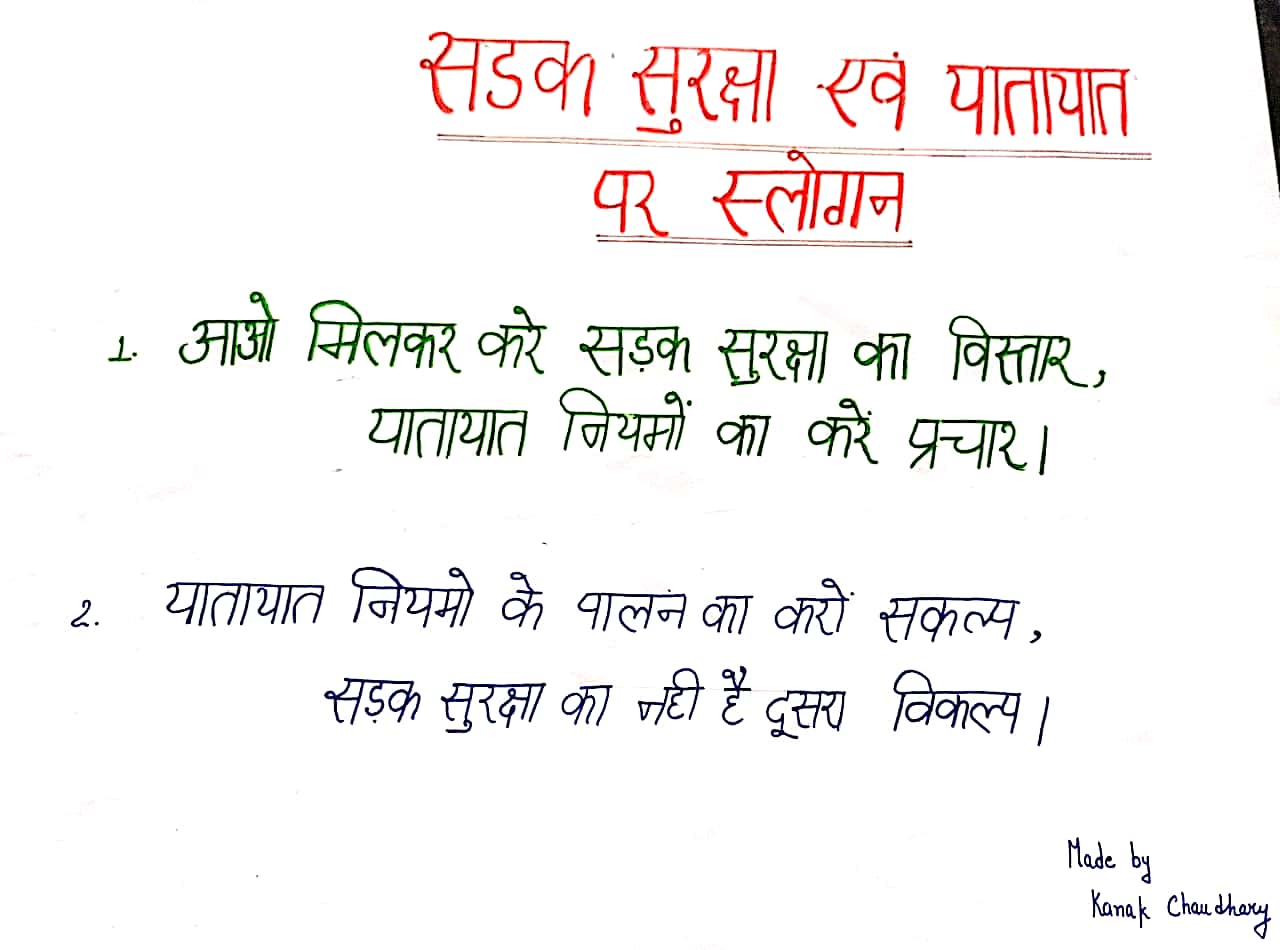 सडक सुरक्षा एवं यातायात
पर स्लोगन
1. आओ मिलकर करे सड़क सुरक्षा का विस्तार,
यातायात नियमों का करें प्रचार।
2. यातायात नियमो के पालन का करों सकल्प,
सड़क सुरक्षा का नही है दूसरा विकल्प।
Made by
Kanak Chaudhary